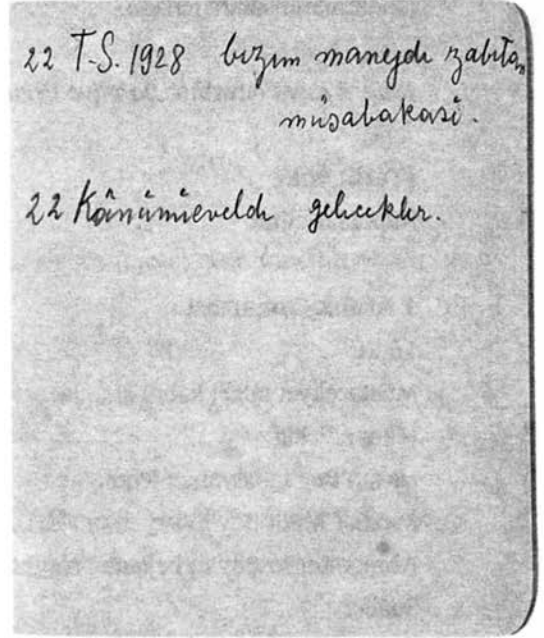 22 T.S. 1928 bizim manejde zabıtan
müsabakasi.
22 Kânûnıevelde gelecekler.